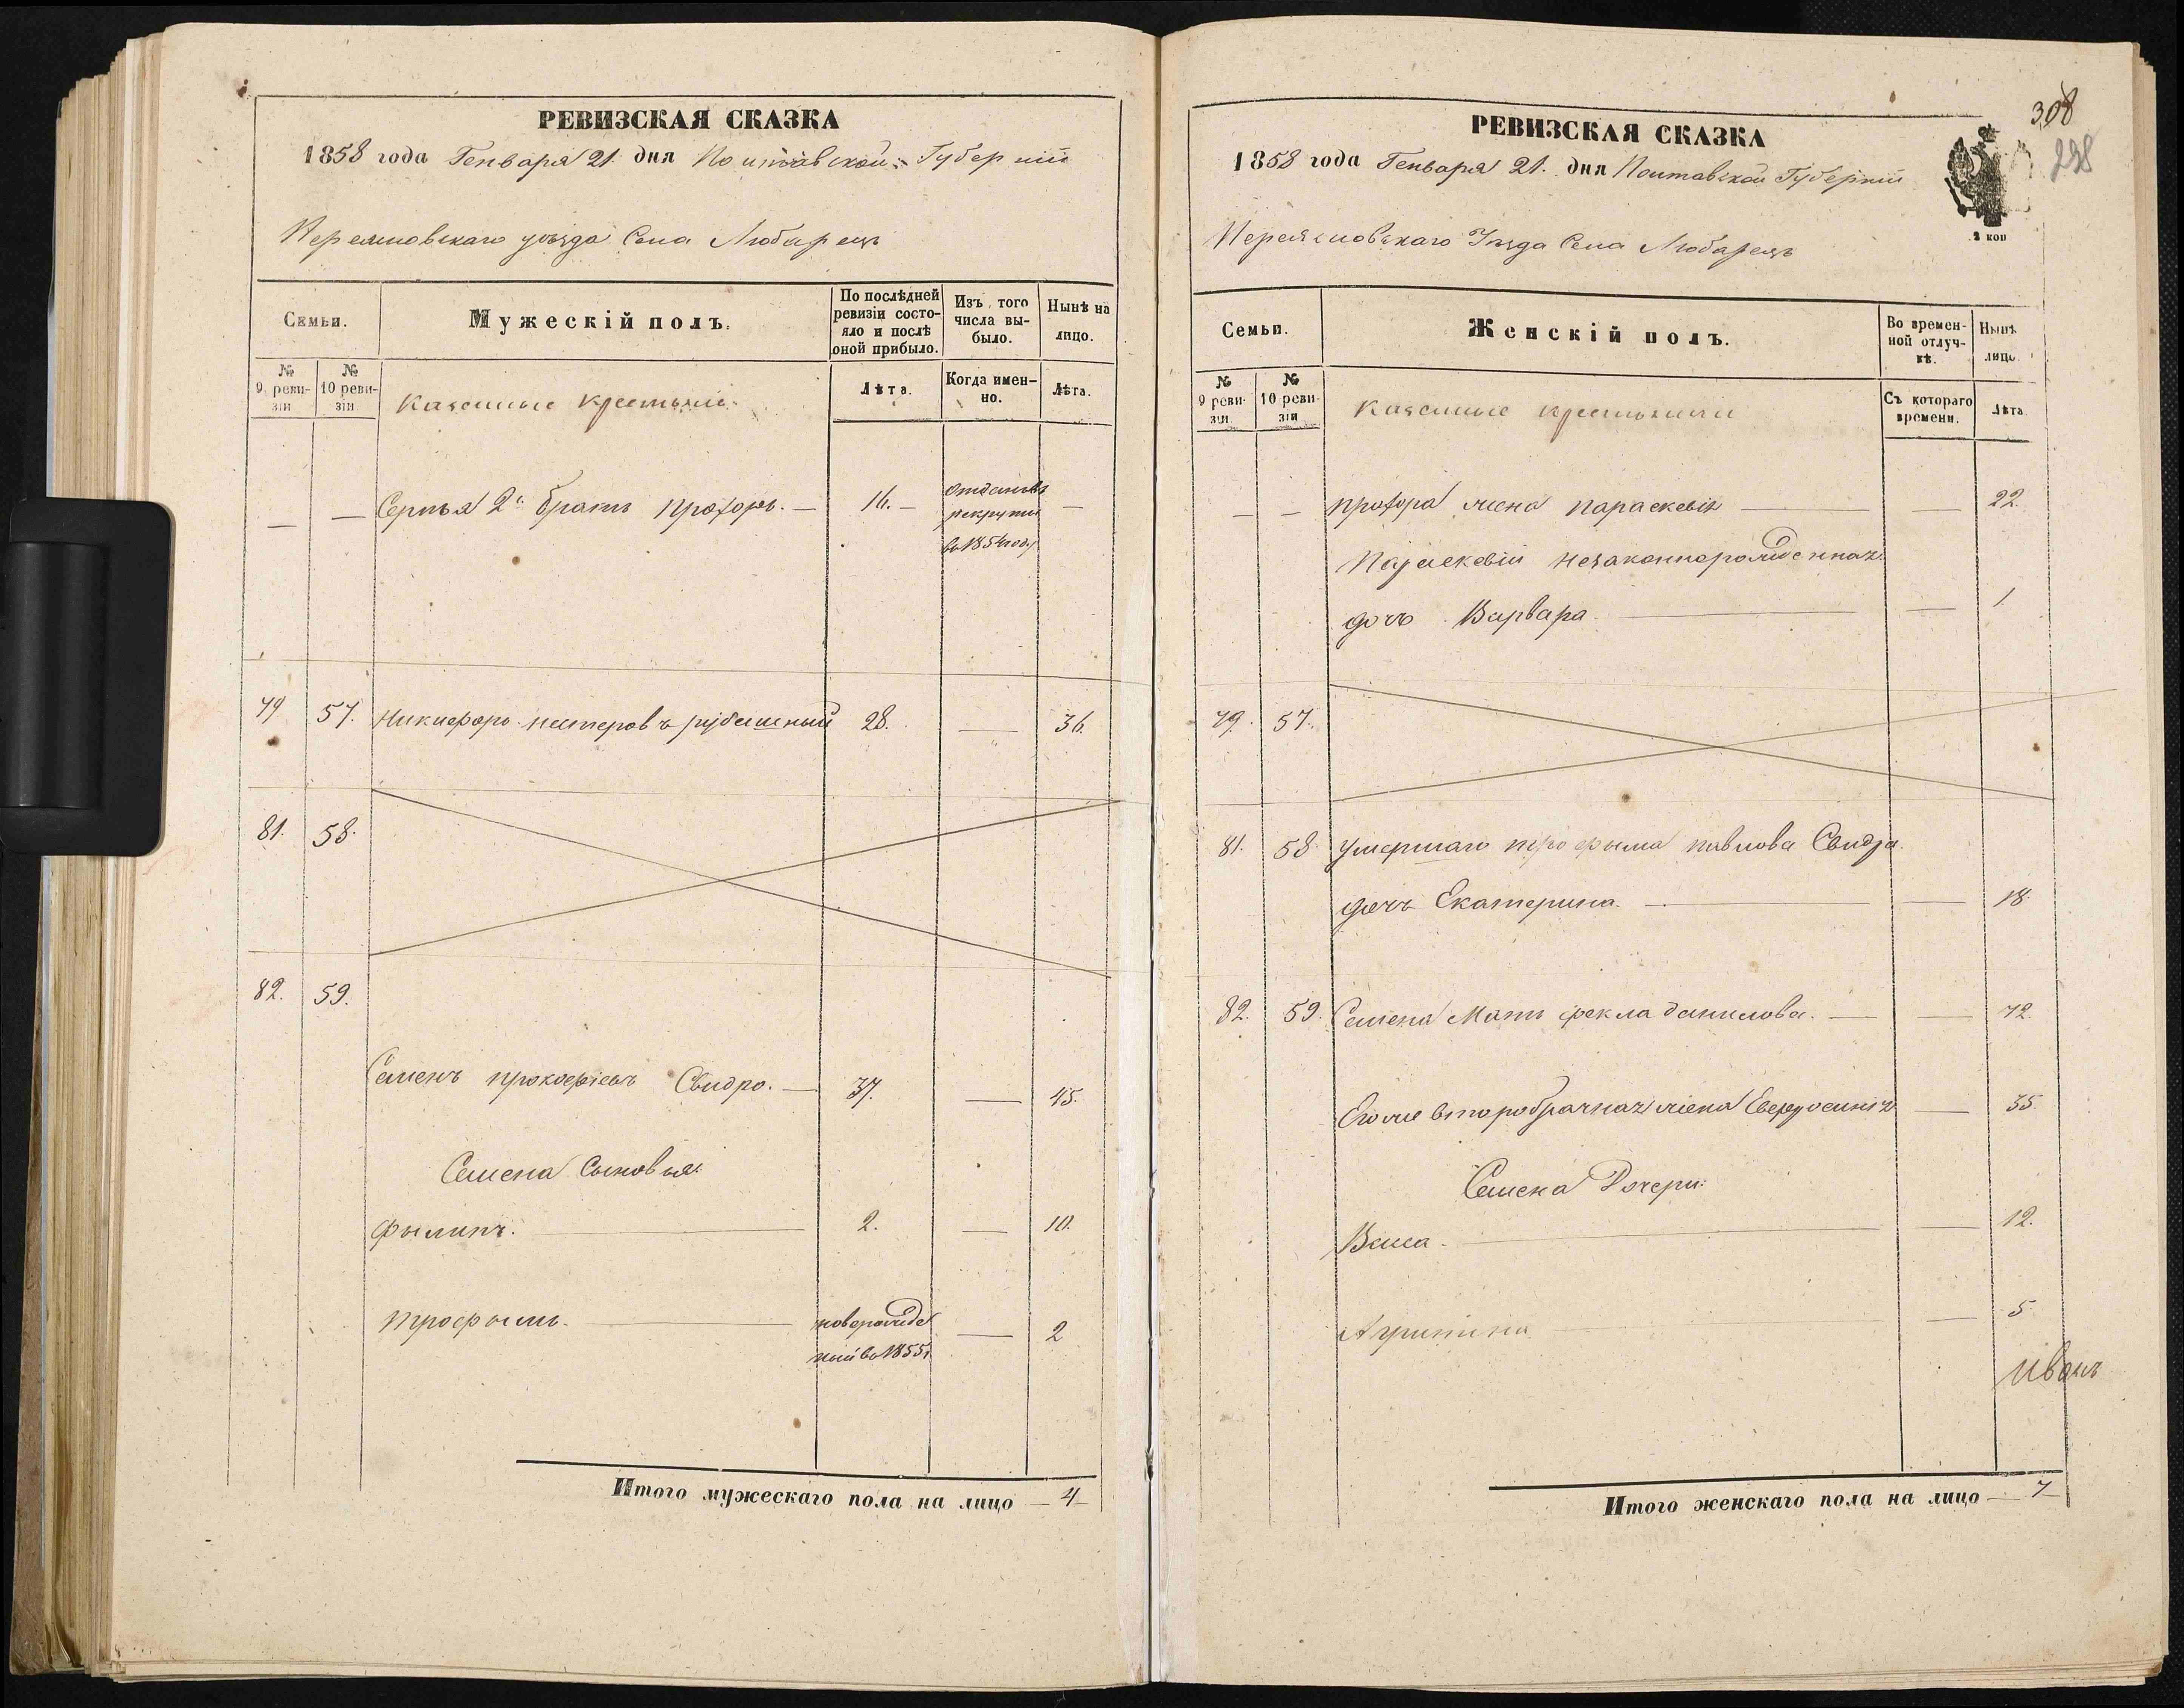 РЕВИЗСКАЯ СКАЗКА
1858 года Генваря 21 дня Полтавской Губерніи
Переяславскаго уѣзда Села Любарецъ
Семьи.
Мужескій полъ.
По послѣдней ревизіи состояло и послѣ оной прибыло.
Изъ того числа выбыло.
Нынѣ на лицо.
№ 9 ревизіи
№ 10 ревизіи
Казенные крестьяне.
Лѣта.
Когда именно.
Лѣта.
— — Сергѣя 2й братъ Прохоръ. — 16. — Отданъ въ —
рекруты
въ 1854 году
79 57. Никифоръ Нестеровъ Рубашный 28. — 36.
81. 58.
82. 59.
Семенъ Прокофіевъ Свидро. — 37. — 45.
Семена Сыновья:
Филипъ. — 2. — 10.
Трофымъ. — новорожден — 2
ный въ 1855 г.
Итого мужескаго пола на лицо — 4 —
308
298
РЕВИЗСКАЯ СКАЗКА
1858 года Генваря 21. дня Полтавской Губерніи
Переяславскаго Уѣзда Села Любарецъ
2 коп
Семьи.
Женскій полъ.
Во временной отлучкѣ.
Нынѣ
лицо
№ 9 ревизіи
№ 10 ревизіи
Казенные крестьянки
Съ котораго времени.
Лѣта.
— — Прохора жена Параскевія — — 22.
Параскевіи незаконнорожденная
дочь Варвара — — 1.
79. 57.
81. 58. Умершаго Трофыма Павлова Свидра
дочь Екатерина. — — 18.
82. 59. Семена Мать Фекла Данилова. — — 72.
Его же второбрачная жена Евфросинія — 35.
Семена Дочери:
Васса — — 12.
Агрипина — — 5.
Иванъ
Итого женскаго пола на лицо — 7